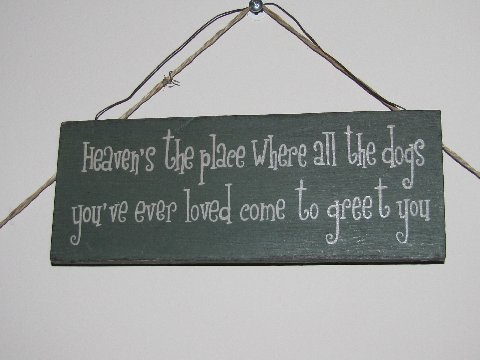 Heaven's the place where all the dogs
you've ever loved come to greet you